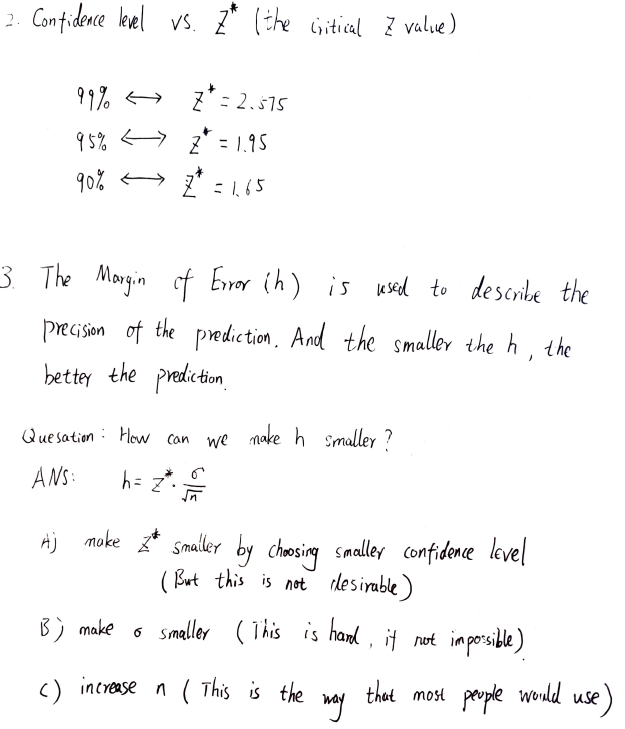 2. Confidence level vs. Z* (the critical Z value)
99% ↔ Z* = 2.575
95% ↔ Z* = 1.95
90% ↔ Z* = 1.65
3. The Margin of Error (h) is used to describe the
precision of the prediction. And the smaller the h, the
better the prediction.
Quesation: How can we make h smaller?
ANS: h = Z* · σ/√n
A) make Z* smaller by choosing smaller confidence level
(But this is not desirable)
B) make σ smaller (This is hard, if not impossible)
C) increase n (This is the way that most people would use)